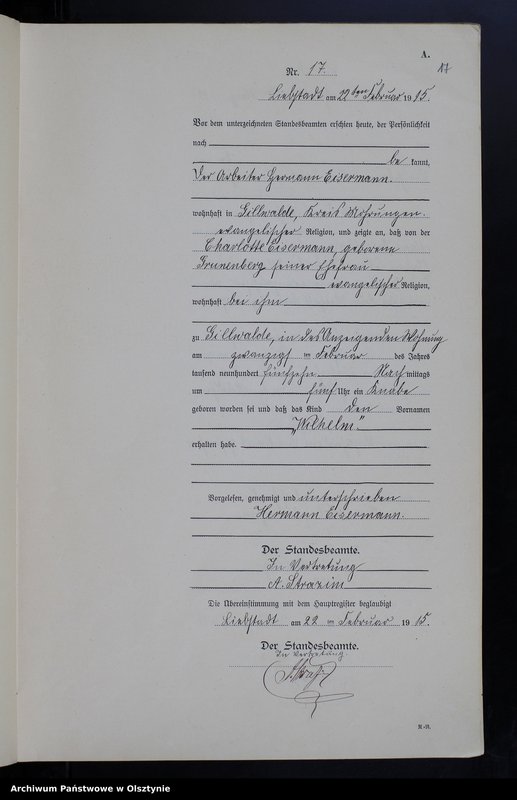 A.
17
Nr. 17.
Liebstadt am 22ten Februar 1915.
Vor dem unterzeichneten Standesbeamten erschien heute, der Persönlichkeit
nach
be kannt,
der Arbeiter Hermann Eisermann.
wohnhaft in Gillwalde, Kreis Mohrungen.
evangelischer Religion, und zeigte an, daß von der
Charlotte Eisermann, geborene
Grunenberg seiner Ehefrau
evangelischer Religion,
wohnhaft bei ihm
zu Gillwalde, in des Anzeigenden Wohnung
am zwanzigst en Februar des Jahres
tausend neunhundert fünfzehn Nach mittags
um fünf Uhr ein Knabe
geboren worden sei und daß das Kind den Vornamen
"Wilhelm"
erhalten habe.
Vorgelesen, genehmigt und unterschrieben
Hermann Eisermann.
Der Standesbeamte.
In Vertretung
A. Strazim
Die Übereinstimmung mit dem Hauptregister beglaubigt
Liebstadt am 22 ten Februar 1915.
Der Standesbeamte.
In Vertretung
Archiwum Państwowe w Olsztynie